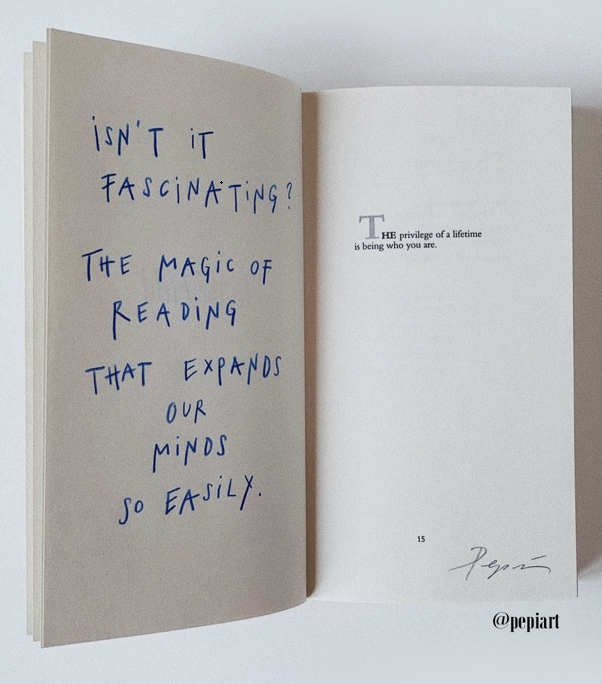 iSN'T iT
FASCiNATiNG?
THE MAGiC OF
READiNG
THAT EXPANDS
OUR
MiNDS
SO EASiLY.
THE privilege of a lifetime
is being who you are.
15
Pepi
@pepiart